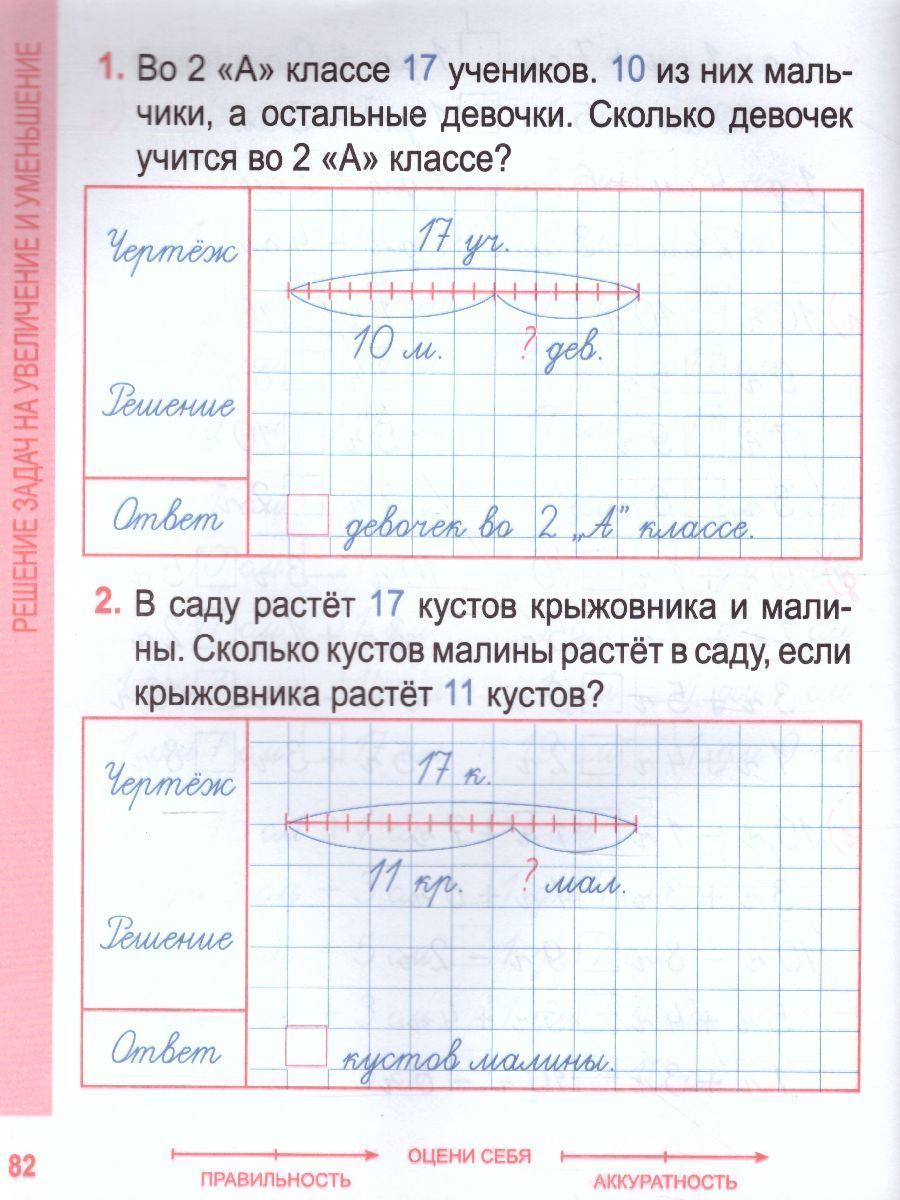 РЕШЕНИЕ ЗАДАЧ НА УВЕЛИЧЕНИЕ И УМЕНЬШЕНИЕ
1. Во 2 «А» классе 17 учеников. 10 из них маль-
чики, а остальные девочки. Сколько девочек
учится во 2 «А» классе?
Чертёж
17 уч.
10 м. ? дев.
Решение
Ответ
девочек во 2 „А" классе.
2. В саду растёт 17 кустов крыжовника и мали-
ны. Сколько кустов малины растёт в саду, если
крыжовника растёт 11 кустов?
Чертёж
17 к.
11 кр. ? мал.
Решение
Ответ
кустов малины.
82
ПРАВИЛЬНОСТЬ
ОЦЕНИ СЕБЯ
АККУРАТНОСТЬ